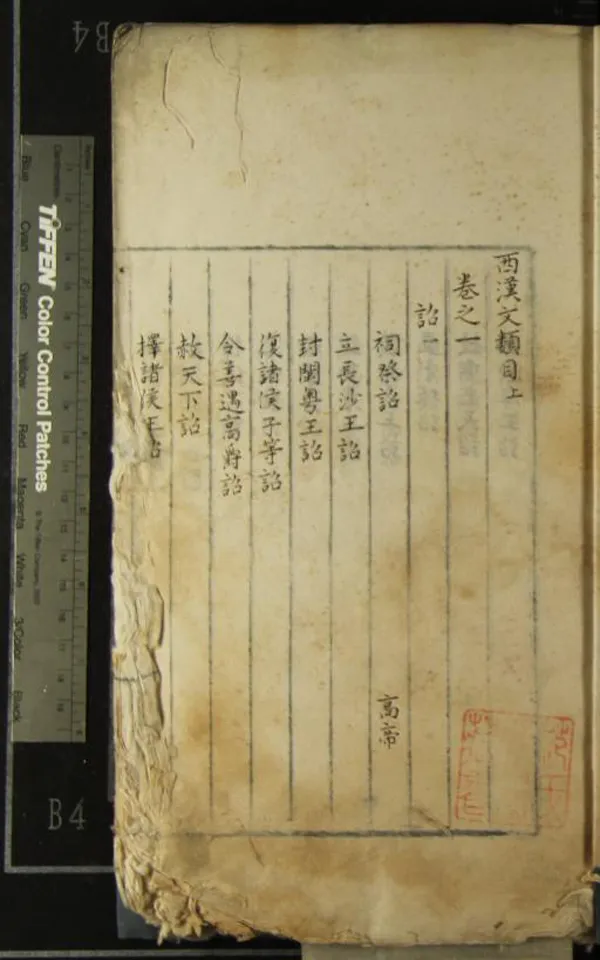 西漢文類目上
卷之一
詔一
祠祭詔 高帝
立長沙王詔
封閩粵王詔
復諸侯子等詔
令善遇高爵詔
赦天下詔
擇諸侯王詔
B4
B4
TIFFEN Color Control Patches
Blue Cyan Green Yellow Red Magenta White 3/Color Black
Centimetres